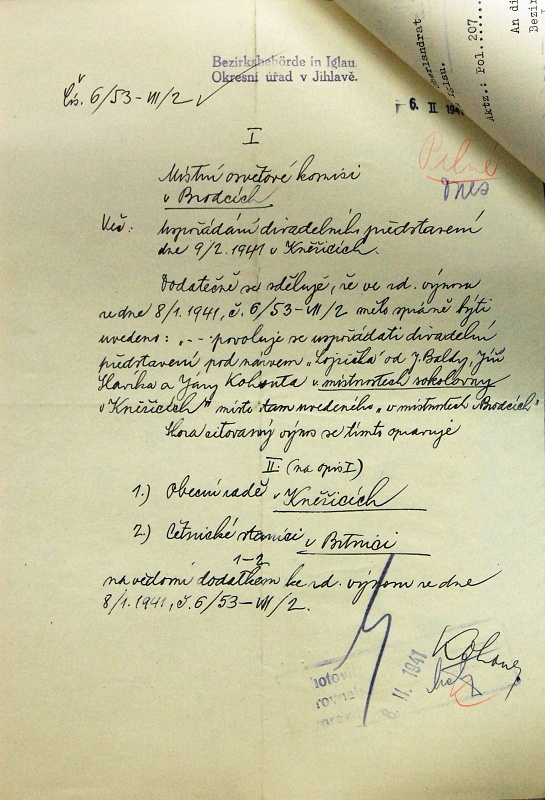 Bezirksbehörde in Iglau.
Okresní úřad v Jihlavě.
Čís. 6/53-VII/2
6. II 194
Oberlandrat
Iglau.
Aktz.: Pol. 207
An di
Bezir
I
Pilné
dnes
Místní osvětové komisi
v Brodcích
Věc: Uspořádání divadelního představení
dne 9/2.1941 v Kněžicích.
Dodatečně se sděluje, že ve zd. výnosu
ze dne 8/1.1941, č. 6/53-VII/2 mělo správně býti
uvedeno: „-- povoluje se uspořádati divadelní
představení pod názvem „Lojzička" od J. Baldy, Jiř
Slavíka a Jany Kohouta v místnostech sokolovny
v Kněžicích" místo tam uvedeného „v místnostech Brodcích"
Shora citovaný výnos se tímto opravuje
II. (na opis I)
1.) Obecní radě v Kněžicích
2.) Četnické stanici v Brtnici
1-2
na vědomí dodatkem ke zd. výnosu ze dne
8/1.1941, č. 6/53-VII/2.
8. II. 1941